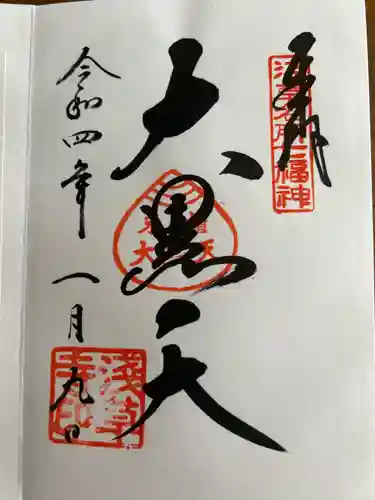 奉拝
浅草名所七福神
大黒天
令和四年一月九日
浅草寺印